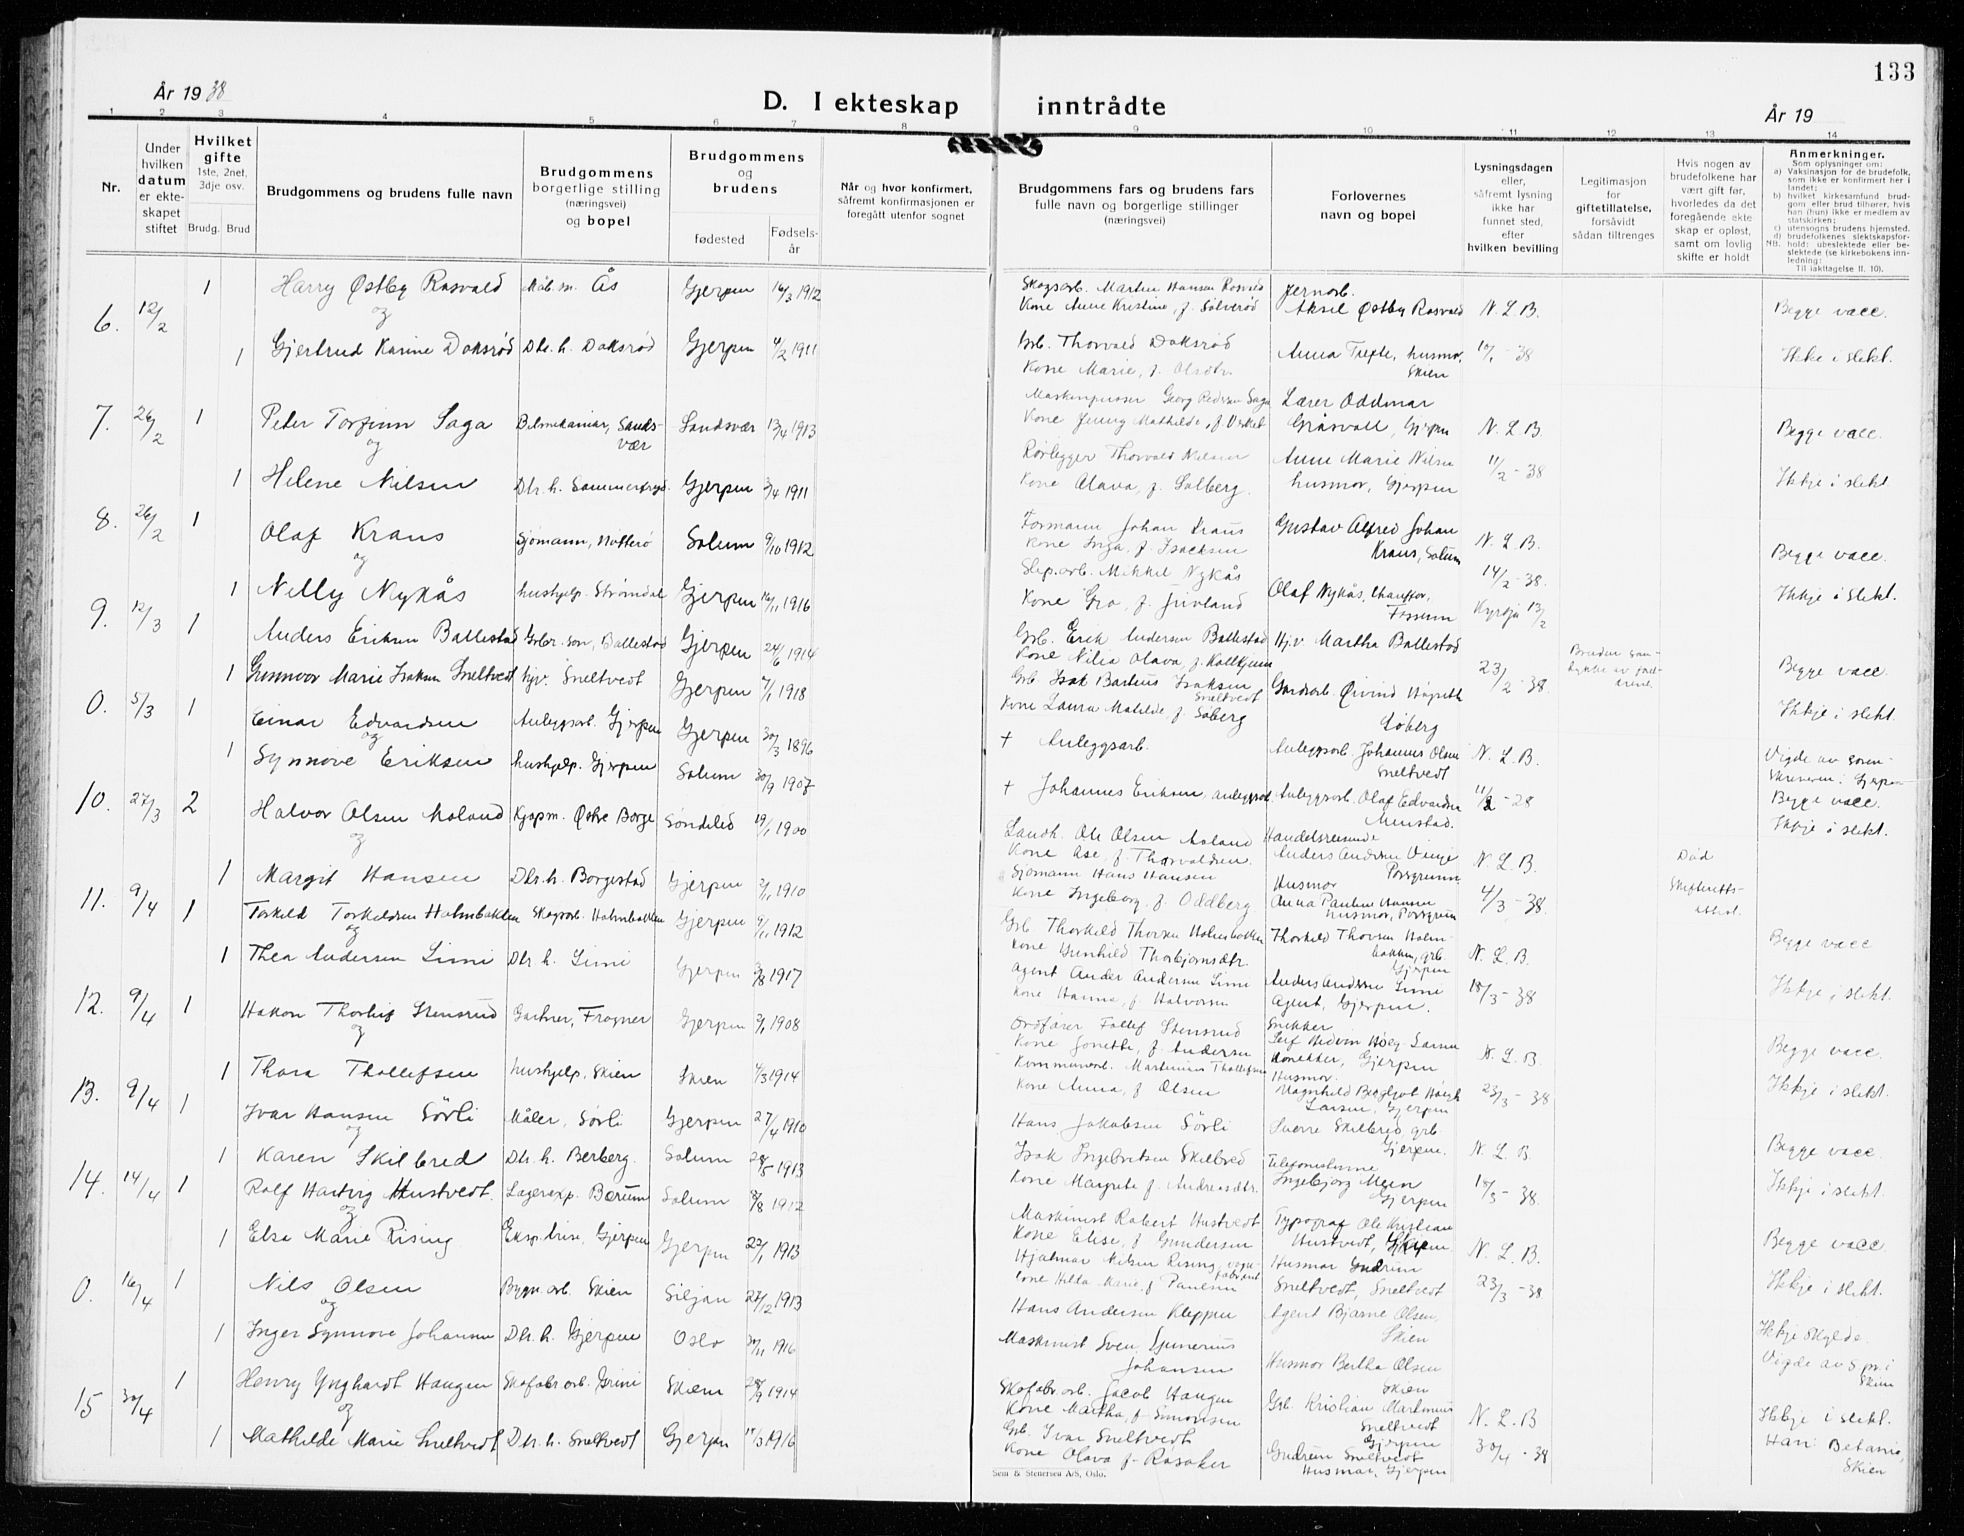 133
År 1938
D. I ekteskap inntrådte
År 19
1 2 3 4 5 6 7 8 9 10 11 12 13 14
Nr.
Under hvilken datum er ekteskapet stiftet
Hvilket gifte 1ste, 2net, 3dje osv.
Brudg. Brud
Brudgommens og brudens fulle navn
Brudgommens borgerlige stilling (næringsvei) og bopel
Brudgommens og brudens
fødested
Fødselsår
Når og hvor konfirmert, såfremt konfirmasjonen er foregått utenfor sognet
Brudgommens fars og brudens fars fulle navn og borgerlige stillinger (næringsvei)
Forlovernes navn og bopel
Lysningsdagen eller, såfremt lysning ikke har funnet sted, efter hvilken bevilling
Legitimasjon for giftetillatelse, forsåvidt sådan tiltrenges
Hvis nogen av brudefolkene har vært gift før, hvorledes da det foregående ekteskap er opløst, samt om lovlig skifte er holdt
Anmerkninger.
Som oplysninger om:
a) Vaksinasjon for de brudefolk, som ikke er konfirmert her i landet;
b) hvilket kirkesamfund brudgom eller brud tilhører, hvis han (hun) ikke er medlem av statskirken;
c) utensogns brudens hjemsted.
d) brudefolkenes slektskapsforhold: ubeslektede eller beslektede (se kirkebokens innledning:
NB.
Til iakttagelse II. 10).
6. 12/2 1 Harry Østby Rasvald Ås Gjerpen 16/3 1912 Skogsarb. Martin Hansen Kone Anne Kristine, f. Jernarb. Aksel Østby Rasvald N. L. B. Begge vacc.
og
1 Gjertrud Karine Doksrød Dtr. h. Doksrød Gjerpen 4/2 1911 Grb. Thorvald Doksrød Kone Marie, f. Olsdtr. Anna Trefte, husmor, Skien 10/1 - 38 Ikke i slekt.
7. 26/2 1 Peter Torfinn Saga Bilmekaniker, Sandsvær Sandsvær 13/4 1913 Georg Pedersen Saga Kone Jenny Mathilde, f. Lærer Oddmar Gråsvoll, Gjerpen N. L. B. Begge vacc.
og
1 Helene Nilsen Dtr. h. Gjerpen 3/4 1911 Rørlegger Thorvald Nilsen Kone Olava, f. Solberg. Anne Marie Nilsen husmor, Gjerpen 11/2 - 38 Ikkje i slekt
8. 26/2 1 Olaf Kraus Sjømann, Nøtterø Solum 9/10 1912 Formann Johan Kraus Kone Inga, f. Isaksen Gustav Alfred Johan Kraus, Solum N. L. B. Begge vacc.
og
1 Nelly Nykås hushjelp. Strømdal Gjerpen 16/11 1916 Slip.arb. Mikkel Nykås Kone Gro, f. Jivland Olaf Nykås, Chauffør, Fossum 14/2 - 38. Kyrkja 13/2 Ikkje i slekt.
9. 12/3 1 Anders Eriksen Ballestad Grbr. søn, Ballestad Gjerpen 24/6 1914 Grb. Erik Andersen Ballestad Kone Nilia Olava, f. Hj.v. Martha Ballestad 23/2 - 38. Begge vacc.
1 Gunnvor Marie Isaksen Sneltvedt hjv. Sneltvedt Gjerpen 7/1 1918 Grb. Isak Bartius Isaksen Sneltvedt Kone Laura Matilde, f. Søberg Gardsarb. Øivind Løberg Ikkje i slekt.
0. 5/3 1 Einar Edvardsen Anleggsarb. Gjerpen Gjerpen 30/3 1896 † Anleggsarb. Anleggsarb. Johannes Olsen Sneltvedt N. L. B. Vigde av soren- skriveren i Gjerpen
og
1 Synnøve Eriksen hushjelp. Gjerpen Solum 30/9 1907 † Johannes Eriksen, anleggsarb. Anleggsarb. Olaf Edvardsen Menstad. 11/2 - 28 Begge vacc. Ikkje i slekt.
10. 27/3 2 Halvor Olsen Moland Kjøpm. Østre Borge Søndeled 19/1 1900 Landh. Ole Olsen Moland Kone Åse, f. Thorvaldsen. Handelsreisende Anders Andersen Vinje Porsgrunn N. L. B. Død Skifteretts-
og
1 Margit Hansen Dtr. h. Borgestad Gjerpen 3/1 1910 Sjømann Hans Hansen Kone Ingeborg, f. Oddberg Husmor Anna Pauline Hansen husmor, Porsgrunn 4/3 - 38.
11. 9/4 1 Torkild Torkildsen Holmbakken Skogsarb. Holmbakken Gjerpen 9/1 1912 Grb. Thorkild Thorsen Holmbakken Kone Gunhild Thorbjørnsdtr. Thorkild Thorsen Holmbakken, grb. Gjerpen N. L. B. Begge vacc
og
1 Thea Andersen Limi Dtr. h. Limi Gjerpen 3/8 1917 Agent Ander Andersen Limi Kone Hanna, f. Halvorsen Anders Andersen Limi Agent, Gjerpen. 18/3 - 38 Ikkje i slekt.
12. 9/4 1 Håkon Thorleif Stensrud Gartner, Frogner Gjerpen 3/1 1908 Ordfører Tollef Stensrud Kone Jonette, f. Andersen Snekker Leif Hedvin Høeg-Larsen Gjerpen N. L. B. Begge vacc.
og
1 Thora Thollefsen hushjelp, Skien Skien 4/3 1914 Kommunearb. Martinius Thollefsen Kone Anna, f. Olsen Husmor. Magnhild Bergljot Høegh Larsen, Gjerpen 23/3 - 38 Ikkje i slekt
13. 9/4 1 Ivar Hansen Sørli Måler, Sørli Gjerpen 27/4 1910 Hans Jakobsen Sørli Sverre Skilbred grb. Gjerpen. N. L. B. Begge vacc.
og
1 Karen Skilbred Dtr. h. Berberg. Solum 28/5 1913 Isak Ingebretsen Skilbred Kone Margrete f. Andreasdtr. Telefonistinne Ingebjorg Meen Gjerpen 18/3 - 38. Ikkje i slekt.
14. 14/4 1 Rolf Hartvig Hustvedt. Lagereksp. Bærum Solum 3/8 1912 Maskinist Robert Hustvedt Kone Elise, f. Gundersen Typograf Ole Kristian Hustvedt, N. L. B. Begge vacc
og
1 Else Marie Rising Eksp.trise, Gjerpen Gjerpen 23/1 1913 Hjalmar Nilsen Rising, Kone Hilda Marie, f. Paulsen Husmor Gudrun Sneltvedt, Sneltvedt 23/3 - 38 Ikkje i slekt.
0. 16/4 1 Nils Olsen Bygn. arb. Skien Siljan 27/12 1913 Hans Andersen Kleppen Agent Bjarne Olsen, Skien Ikkje skylde.
og
1 Inger Synnøve Johansen Dtr. h. Gjerpen Oslo 30/11 1916 Maskinist Sven Gunerius Johansen Husmor Bertha Olsen Skien Vigde av s.pr. i Skien
15 30/4 1 Henry Ynghardt Haugen Skofabr arb. Grini Skien 28/9 1914 Skofabr.arb. Jacob Haugen Kone Martha, f. Simonsen Grb. Kristian Martinius Sneltvedt Gjerpen N. L. B Ikkje i slekt.
og
1 Mathilde Marie Sneltvedt Dtr. h. Sneltvedt Gjerpen 11/3 1916 Grb. Ivar Sneltvedt Kone Olava f. Rasaker Gudrun Sneltvedt Husmor, Gjerpen 30/4 - 38 Han: Betania, Skien
Sem & Stenersen A/S, Oslo.